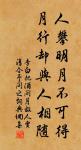 人攀明月不可得
月行却與人相隨
李白把酒問月故人賈
淳令予問之詞典網書